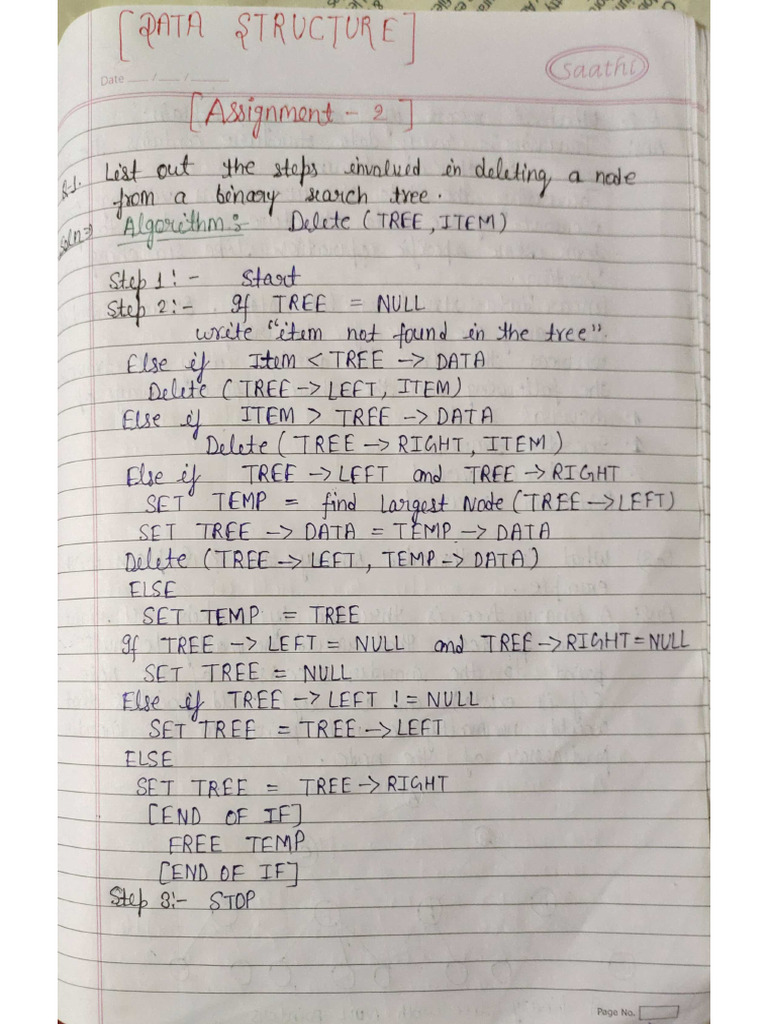 [DATA STRUCTURE]
Date __/__/____
Saathi
[Assignment - 2]
Q-1. List out the steps involued in deleting a node
from a binary search tree.
Soln⇒ Algorithm:- Delete (TREE, ITEM)
Step 1:- Start
Step 2:- If TREE = NULL
write "item not found in the tree".
Else if Item < TREE -> DATA
Delete (TREE -> LEFT, ITEM)
Else if ITEM > TREE -> DATA
Delete (TREE -> RIGHT, ITEM)
Else if TREE -> LEFT and TREE -> RIGHT
SET TEMP = find Largest Node (TREE -> LEFT)
SET TREE -> DATA = TEMP -> DATA
Delete (TREE -> LEFT, TEMP -> DATA)
ELSE
SET TEMP = TREE
If TREE -> LEFT = NULL and TREE -> RIGHT = NULL
SET TREE = NULL
Else if TREE -> LEFT != NULL
SET TREE = TREE -> LEFT
ELSE
SET TREE = TREE -> RIGHT
[END OF IF]
FREE TEMP
[END OF IF]
Step 3:- STOP
Page No.